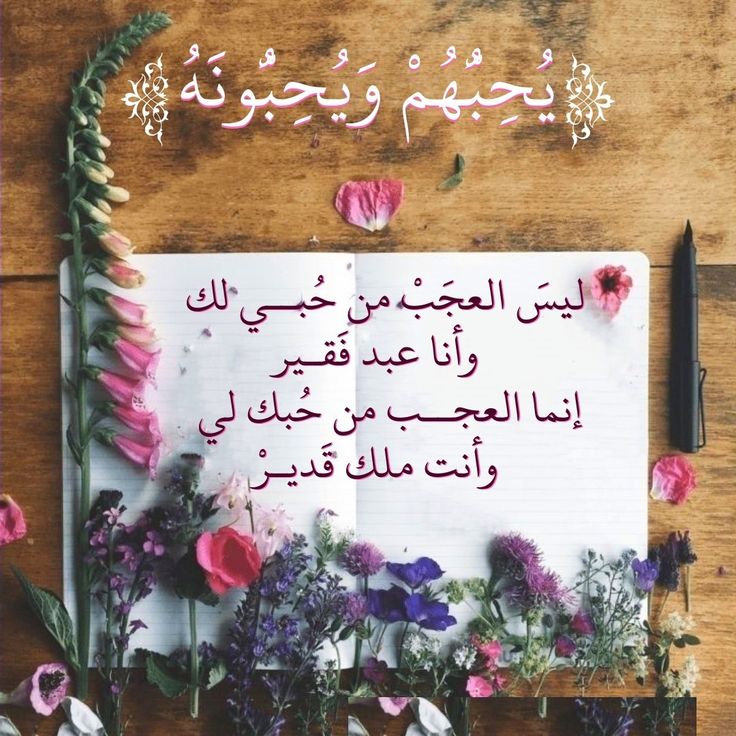 يُحِبُّهُمْ وَيُحِبُّونَهُ
ليسَ العجَبْ من حُبـــي لك
وأنا عبد فَقـير
إنما العجـــب من حُبك لي
وأنت ملك قَديـرْ